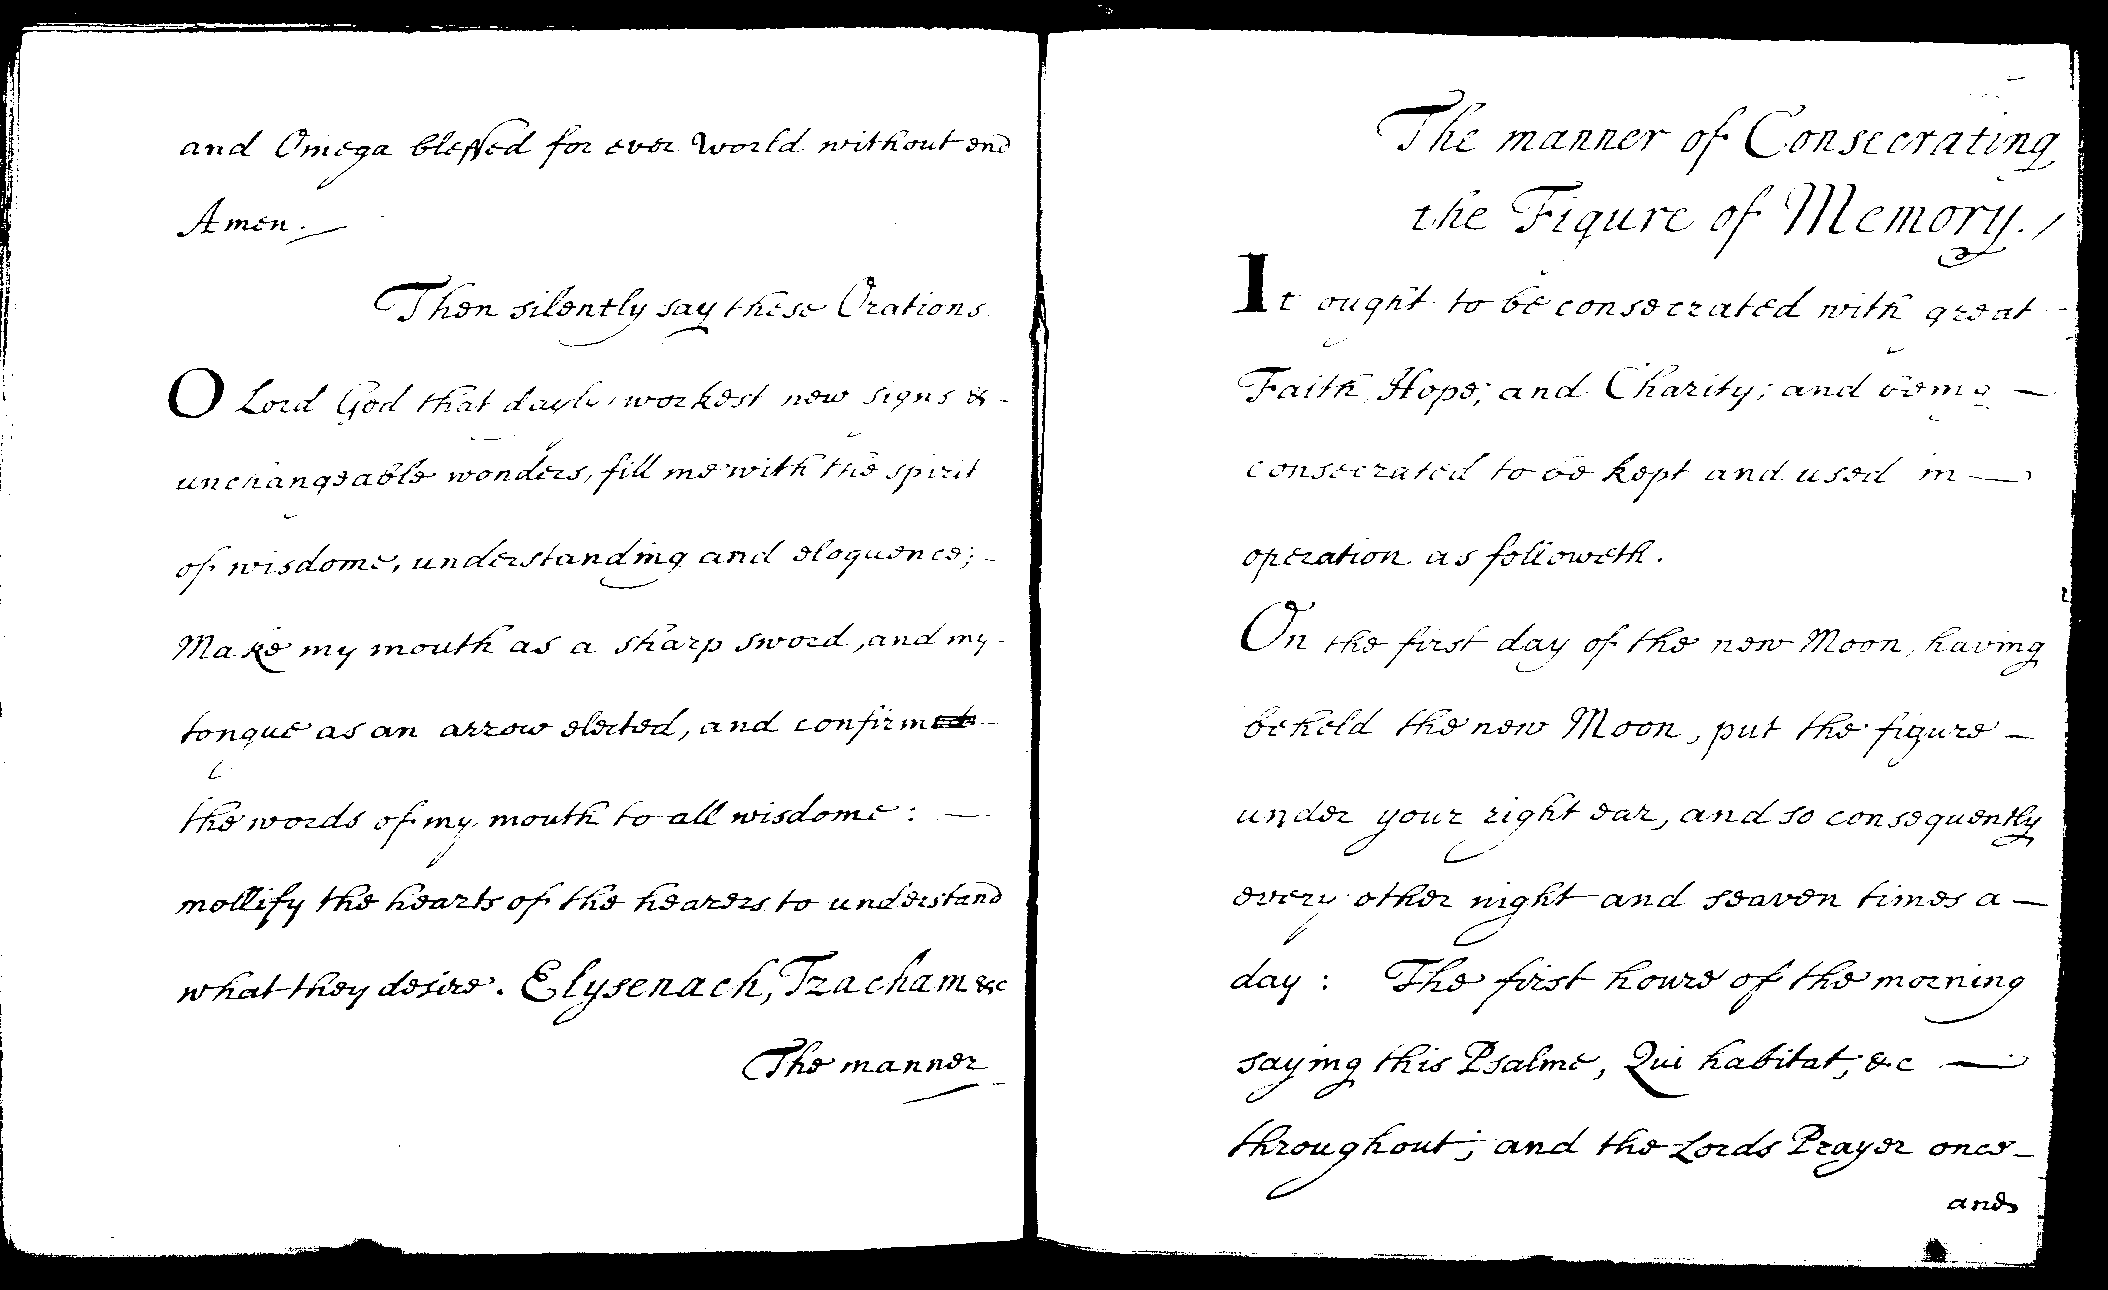 and Omega blessed for ever World without end
Amen.
Then silently say these Orations.
O Lord God that dayly workest new signs &
unchangeable wonders, fill me with the spirit
of wisdome, understanding and eloquence;
Make my mouth as a sharp sword, and my
tongue as an arrow elected, and confirm
the words of my mouth to all wisdome:
mollify the hearts of the hearers to understand
what they desire. Elysenach, Tzacham &c
The manner
The manner of Consecrating
the Figure of Memory.
It ought to be consecrated with great
Faith, Hope; and Charity; and being
consecrated to be kept and used in
operation as followeth.
On the first day of the new Moon, having
beheld the new Moon, put the figure
under your right ear, and so consequently
every other night and seaven times a
day: The first houre of the morning
saying this Psalme, Qui habitat, &c
throughout; and the Lords Prayer once
and